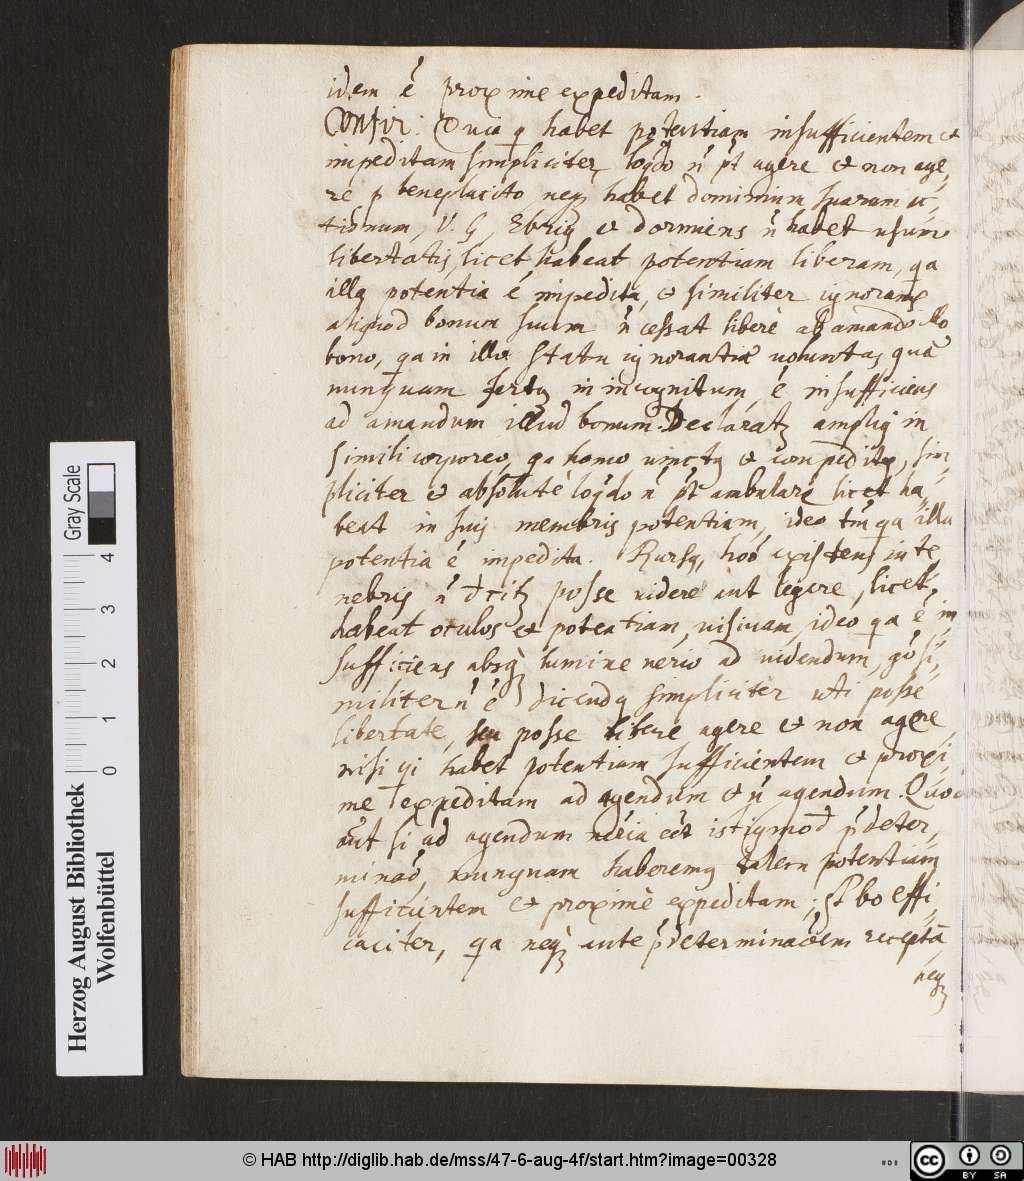 idem ē proxime expeditam.
Confir: Quia q habet potentiam insufficientem et
impeditam simpliciter loqdo ñ pt agere et non age,
re p beneplacito neq habet dominium suarum ac,
tionum, V. G. Ebrig et dormiens ñ habet usum
libertatis, licet habeat potentiam liberam, qa
illa potentia ē impedita, et similiter ignorans
aliquod bonum suum ñ cessat liberè ab amando illo
bono, qa in illo statu ignorantiæ uoluntas, quæ
nunquam fertq in incognitum, ē insufficiens
ad amandum illud bonum. Declaratq amplig in
simili corporeo, qa homo uinctg et conpeditg, sim,
pliciter et absolutè loqdo ñ pt ambulare licet ha,
beat in suis membris potentiam, ideo tm qa illa
potentia ē impedita. Rursg, hoo existens in te,
nebris ñ dcitq posse uidere aut legere, licet,
habeat oculos et potentiam uisiuam, ideo qa ē in,
sufficiens absq lumine nerio ad uidendum, go si,
militer ñ ē dicendg simpliciter uti posse
libertate, seu posse liberè agere et non agere,
nisi qi habet potentiam sufficientem et proxi,
me expeditam ad agendum et ñ agendum. Quod
aut si ad agendum neria eēt istiqmod pdeter,
minao, nunquam haberemg talem potentiam
sufficientem et proximè expeditam; Pbo effi,
caciter, qa neq ante pdeterminaoēm receptā
neq
Herzog August Bibliothek
Wolfenbüttel
Gray Scale
0 1 2 3 4
© HAB http://diglib.hab.de/mss/47-6-aug-4f/start.htm?image=00328
cc BY SA